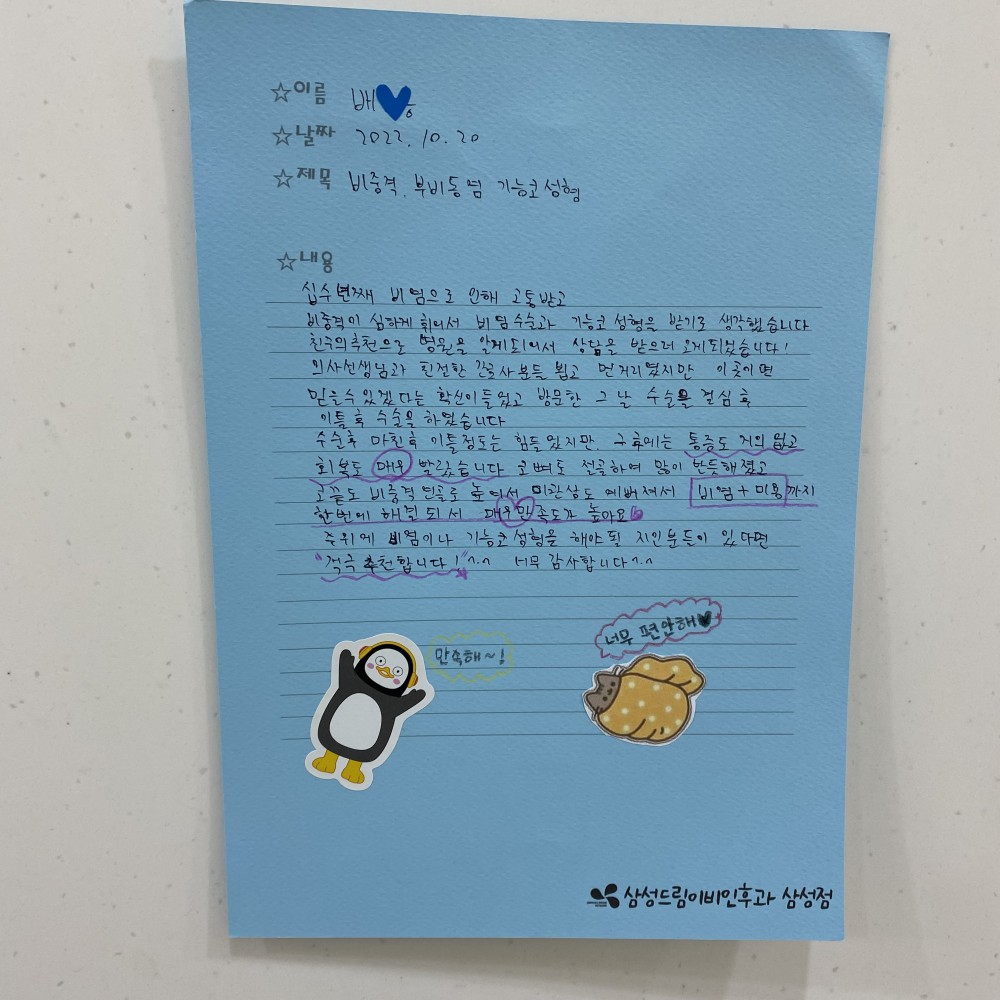 ☆이름 배♥
☆날짜 2022. 10. 20
☆제목 비중격, 부비동염 기능코성형
☆내용
십수년째 비염으로 인해 고통받고
비중격이 심하게 휘어서 비염수술과 기능코 성형을 받기로 생각했습니다
친구의추천으로 병원을 알게되어서 상담을 받으러 오게되었습니다!
의사선생님과 친절한 간호사분들 뵙고 먼거리였지만 이곳이면
믿을수있겠다는 확신이들었고 방문한 그 날 수술을 결심 후
이틀 후 수술을 하였습니다
수술후 마친후 이틀정도는 힘들었지만, 그 후에는 통증도 거의 없고
회복도 매우 빨랐습니다 코뼈도 절골하여 많이 반듯해졌고
코끝도 비중격 연골로 높여서 미관상도 예뻐져서 비염+미용까지
한번에 해결되서 매우만족도가 높아요
주위에 비염이나 기능코성형을 해야 될 지인분들이 있다면
"적극 추천합니다!"^.^ 너무 감사합니다^.^
너무 편안해♥
만족해~!
삼성드림이비인후과 삼성점